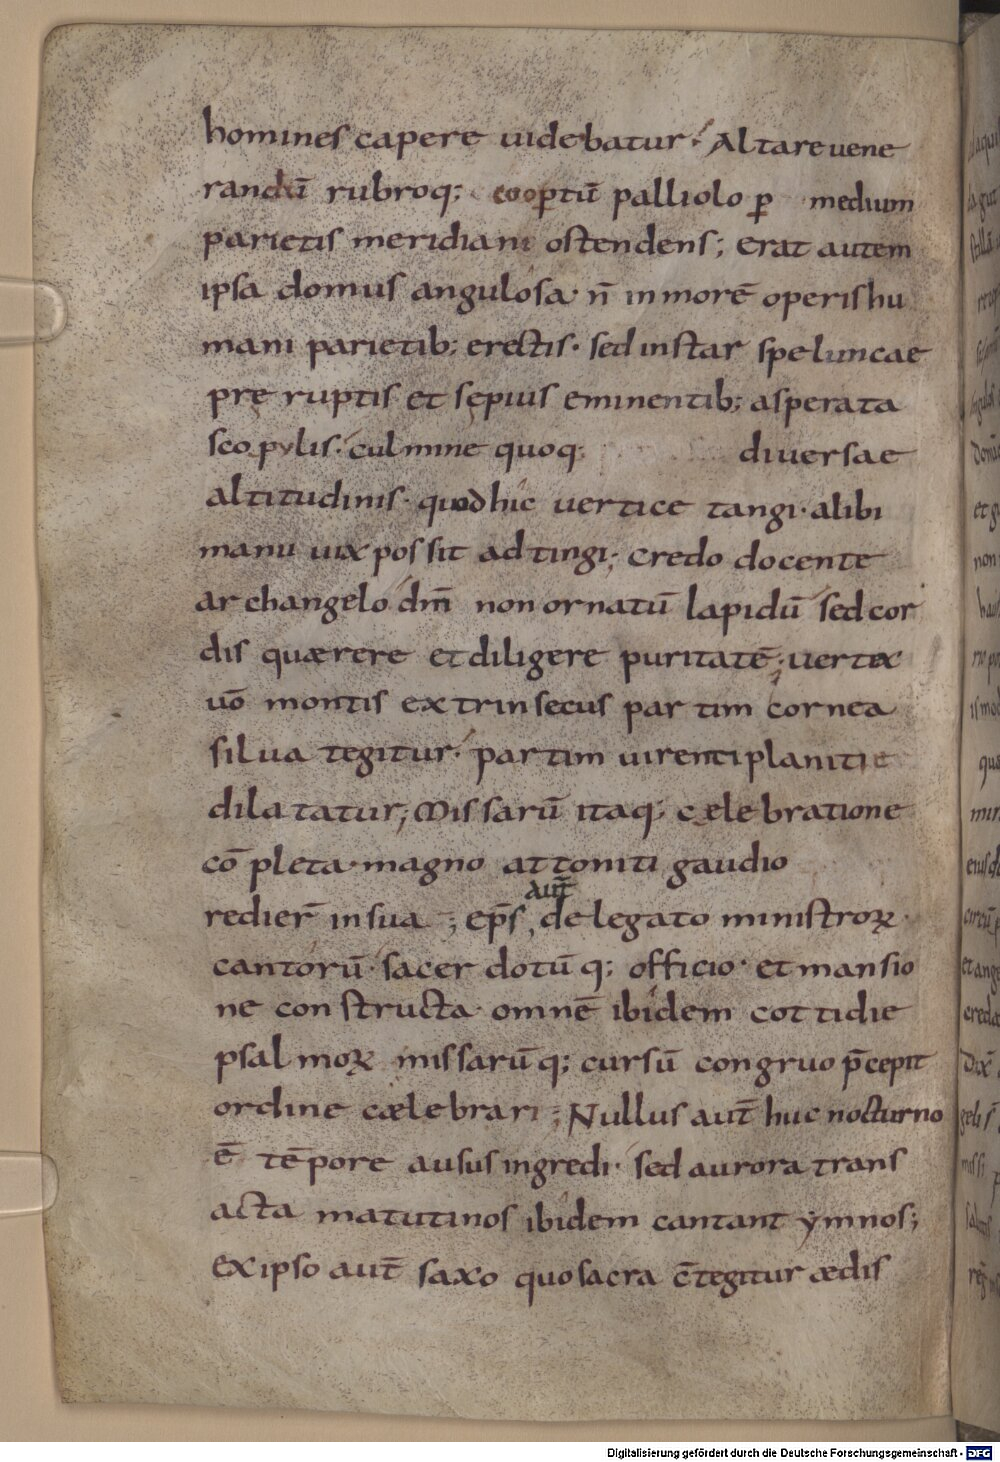 homines capere uidebatur· Altare uene
randū rubroq; coopꝑtū palliolo ꝑ medium
parietis meridiani ostendens; erat autem
ipsa domus angulosa· n̄ in morē operis hu
mani parietib; erectis· sed instar speluncae
pre ruptis et sepius eminentib; asperata
scopylis· culmine quoq; diuersae
altitudinis· quod hic uertice tangi· alibi
manu uix possit adtingi; credo docente
archangelo dm̄ non ornatū lapidū sed cor
dis quærere et diligere puritatē; uertex
uō montis extrinsecus partim cornea
silua tegitur· partim uirenti planitie
dilatatur; Missarū itaq; cælebratione
cō pleta· magno attoniti gaudio
aut̄
redier̄ in sua; ep̄s, delegato ministroꝝ·
cantorū· sacerdotūq; officio· et mansio
ne constructa· omnē ibidem cottidie
psalmoꝝ missarūq; cursū congruo p̄cepit
ordine cælebrari; Nullus aut̄ huc nocturno
ē tēpore ausus ingredi· sed aurora trans
acta matutinos ibidem cantant ẏmnos;
ex ipso aut̄ saxo quo sacra c̄tegitur ædis
Digitalisierung gefördert durch die Deutsche Forschungsgemeinschaft - DFG